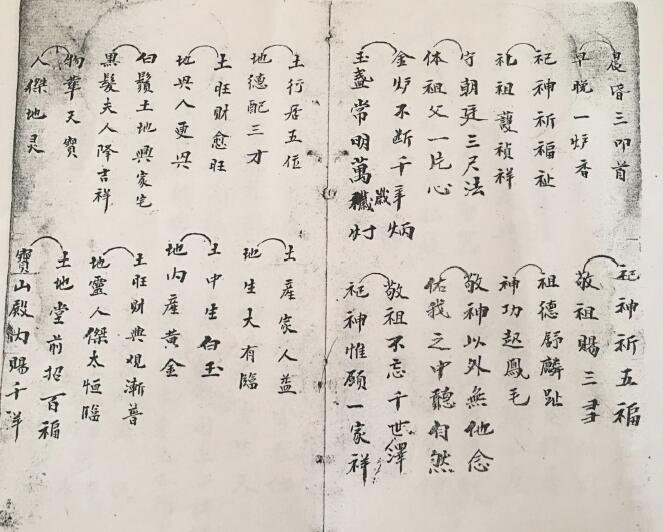 晨昏三叩首
早晚一炉香
祀神祈福祉
礼祖護禎祥
守朝廷三尺法
体祖父一片心
金炉不断千年炳
玉盏常明萬歲灯
祀神祈五福
敬祖賜三多
祖德舒麟趾
神功起鳳毛
敬神以外無他念
佑我之中聽自然
敬祖不忘千世澤
祀神惟願一家祥
土行居五位
地德配三才
土旺财愈旺
地興人更興
白鬚土地興家宅
黑髮夫人降吉祥
物華天寶
人傑地灵
土產家人益
地生大有臨
土中生白玉
地内産黄金
土旺财興观漸普
地靈人傑太恒臨
土地堂前招百福
寶山殿内賜千祥